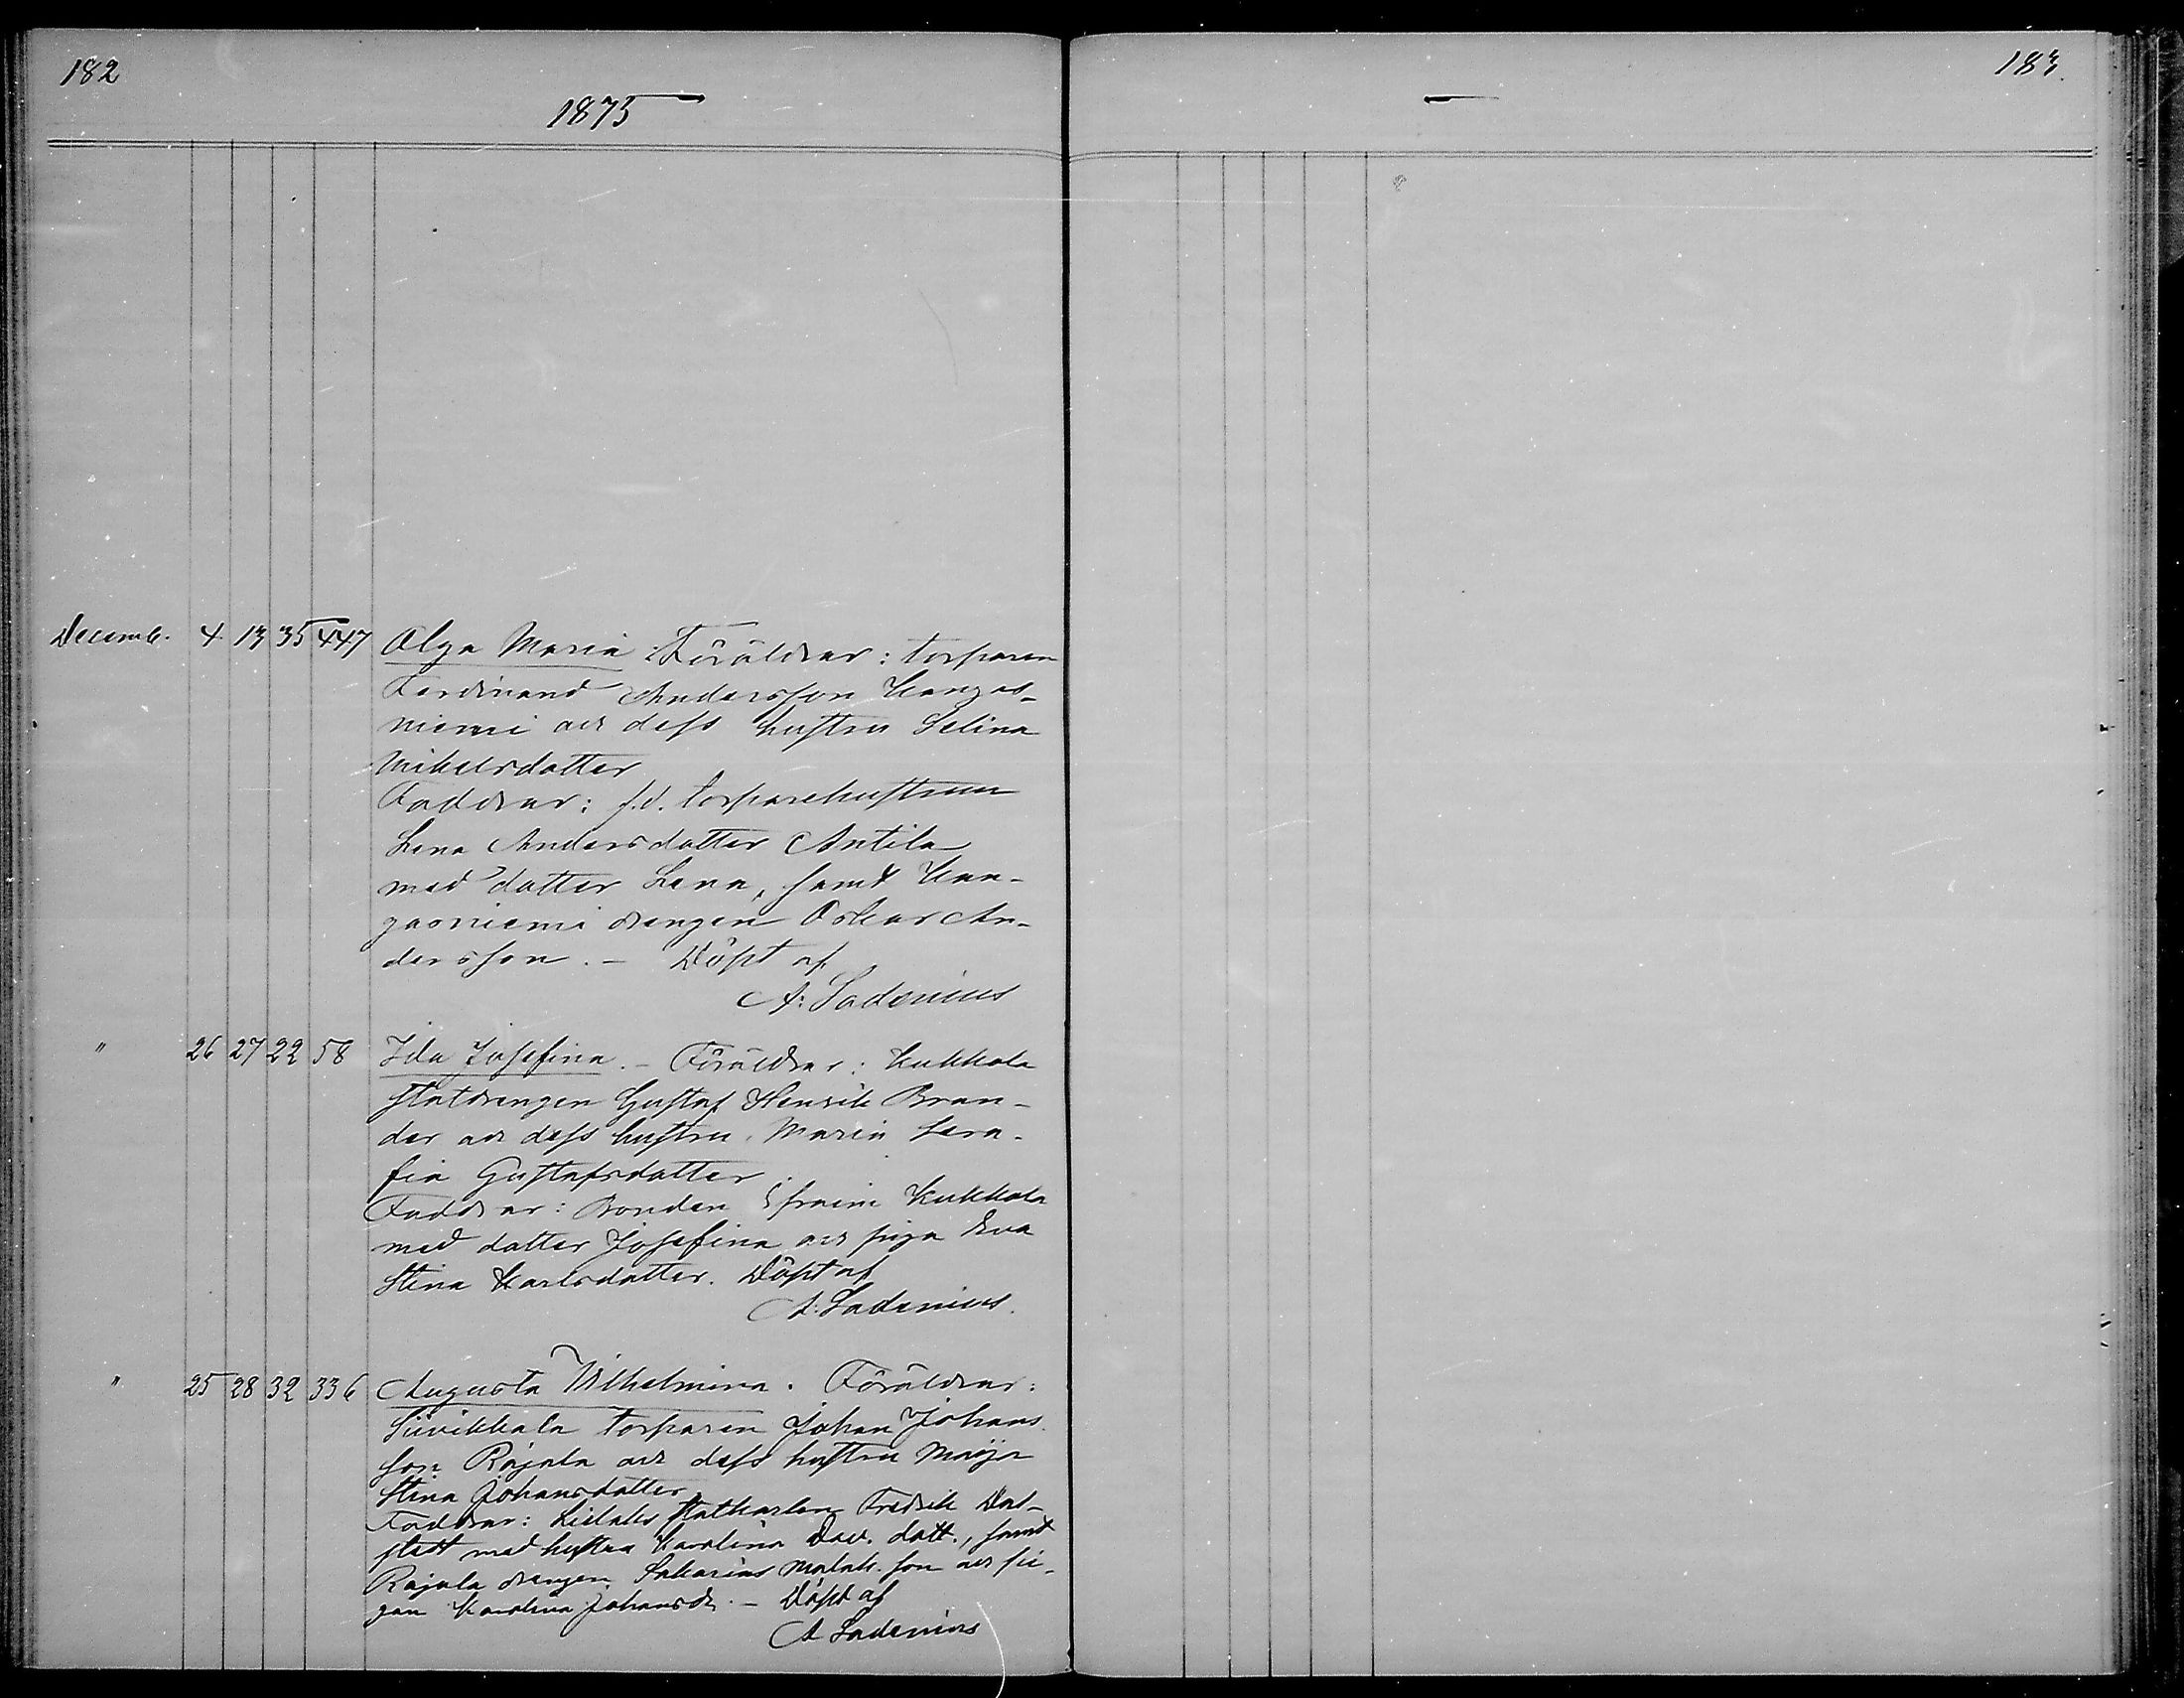 182
183.
1875
Decemb. 4 13 35 447 Olga Maria. Föräldrar: torparen
Ferdinand Andersson Kangas-
niemi och dess hustru Selina
Mikelsdotter
Faddrar: f.d. torparehustrun
Lena Andersdotter Antila
med dotter Lena, samt Kan-
gasniemi drengen Oskar An-
dersson. - Döpt af
A: Ladenius
" 26 27 22 58 Ida Josefina. - Föräldrar: Kukkola
statdrengen Gustaf Henrik Bran-
der och dess hustru Maria Sera-
fia Gustafsdotter
Faddrar: Bonden Efraim Kukkola
med dotter Josefina och piga Eva
Stina Karlsdotter. Döpt af
A: Ladenius.
" 25 28 32 336 Augusta Wilhelmina. Föräldrar:
Siivikkala torparen Johan Johans
son Rajala och dess hustru Maija
Stina Johansdotter
Faddrar: statkarlen Fredrik Dal-
stedt med hustru Karolina Dav. dott., samt
Rajala drengen Sakarias Malak. son och pi-
gan Karolina Johansdr. - Döpt af
A Ladenius